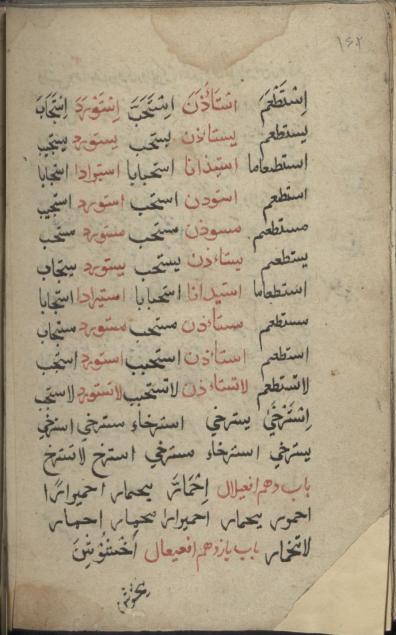 ۱۶۲
اِسْتَطْعَمَ اسْتَأْذَنَ اِسْتَحَبَّ اِسْتَوْرَدَ اِسْتَجَابَ
يستطعم يستاذن يستحب يستورد يستجيب
استطعاما استيذانا استحبابا استيرادا استجابا
استطعم استوذن استحب استورد استجيب
مستطعم مستوذن مستحب مستورد مستجب
يستطعم يستاءذن يستحب يستورد يستجاب
استطعاما استيدانا استحبابا استيرادا استجابا
مستطعم مستاذن مستحب مستورد مستجاب
استطعم استاذن استحبب استورد استجب
لاتستطعم لاتستاءذن لاتستحبب لاتستورد لاتستجب
اِسْتَرْخَىٰ يسترخي استرخاء مسترخي استرخي
يسترخي استرخاء مسترخي استرخ لاتسترخ
باب دهم افعيلال اِحْمَارَّ يحمار احميرارًا
احمور يحمار احميرارا محمار احمار
لاتحمار باب يازدهم افعيعال اَخْشَوْشَنَ
يخشوشن